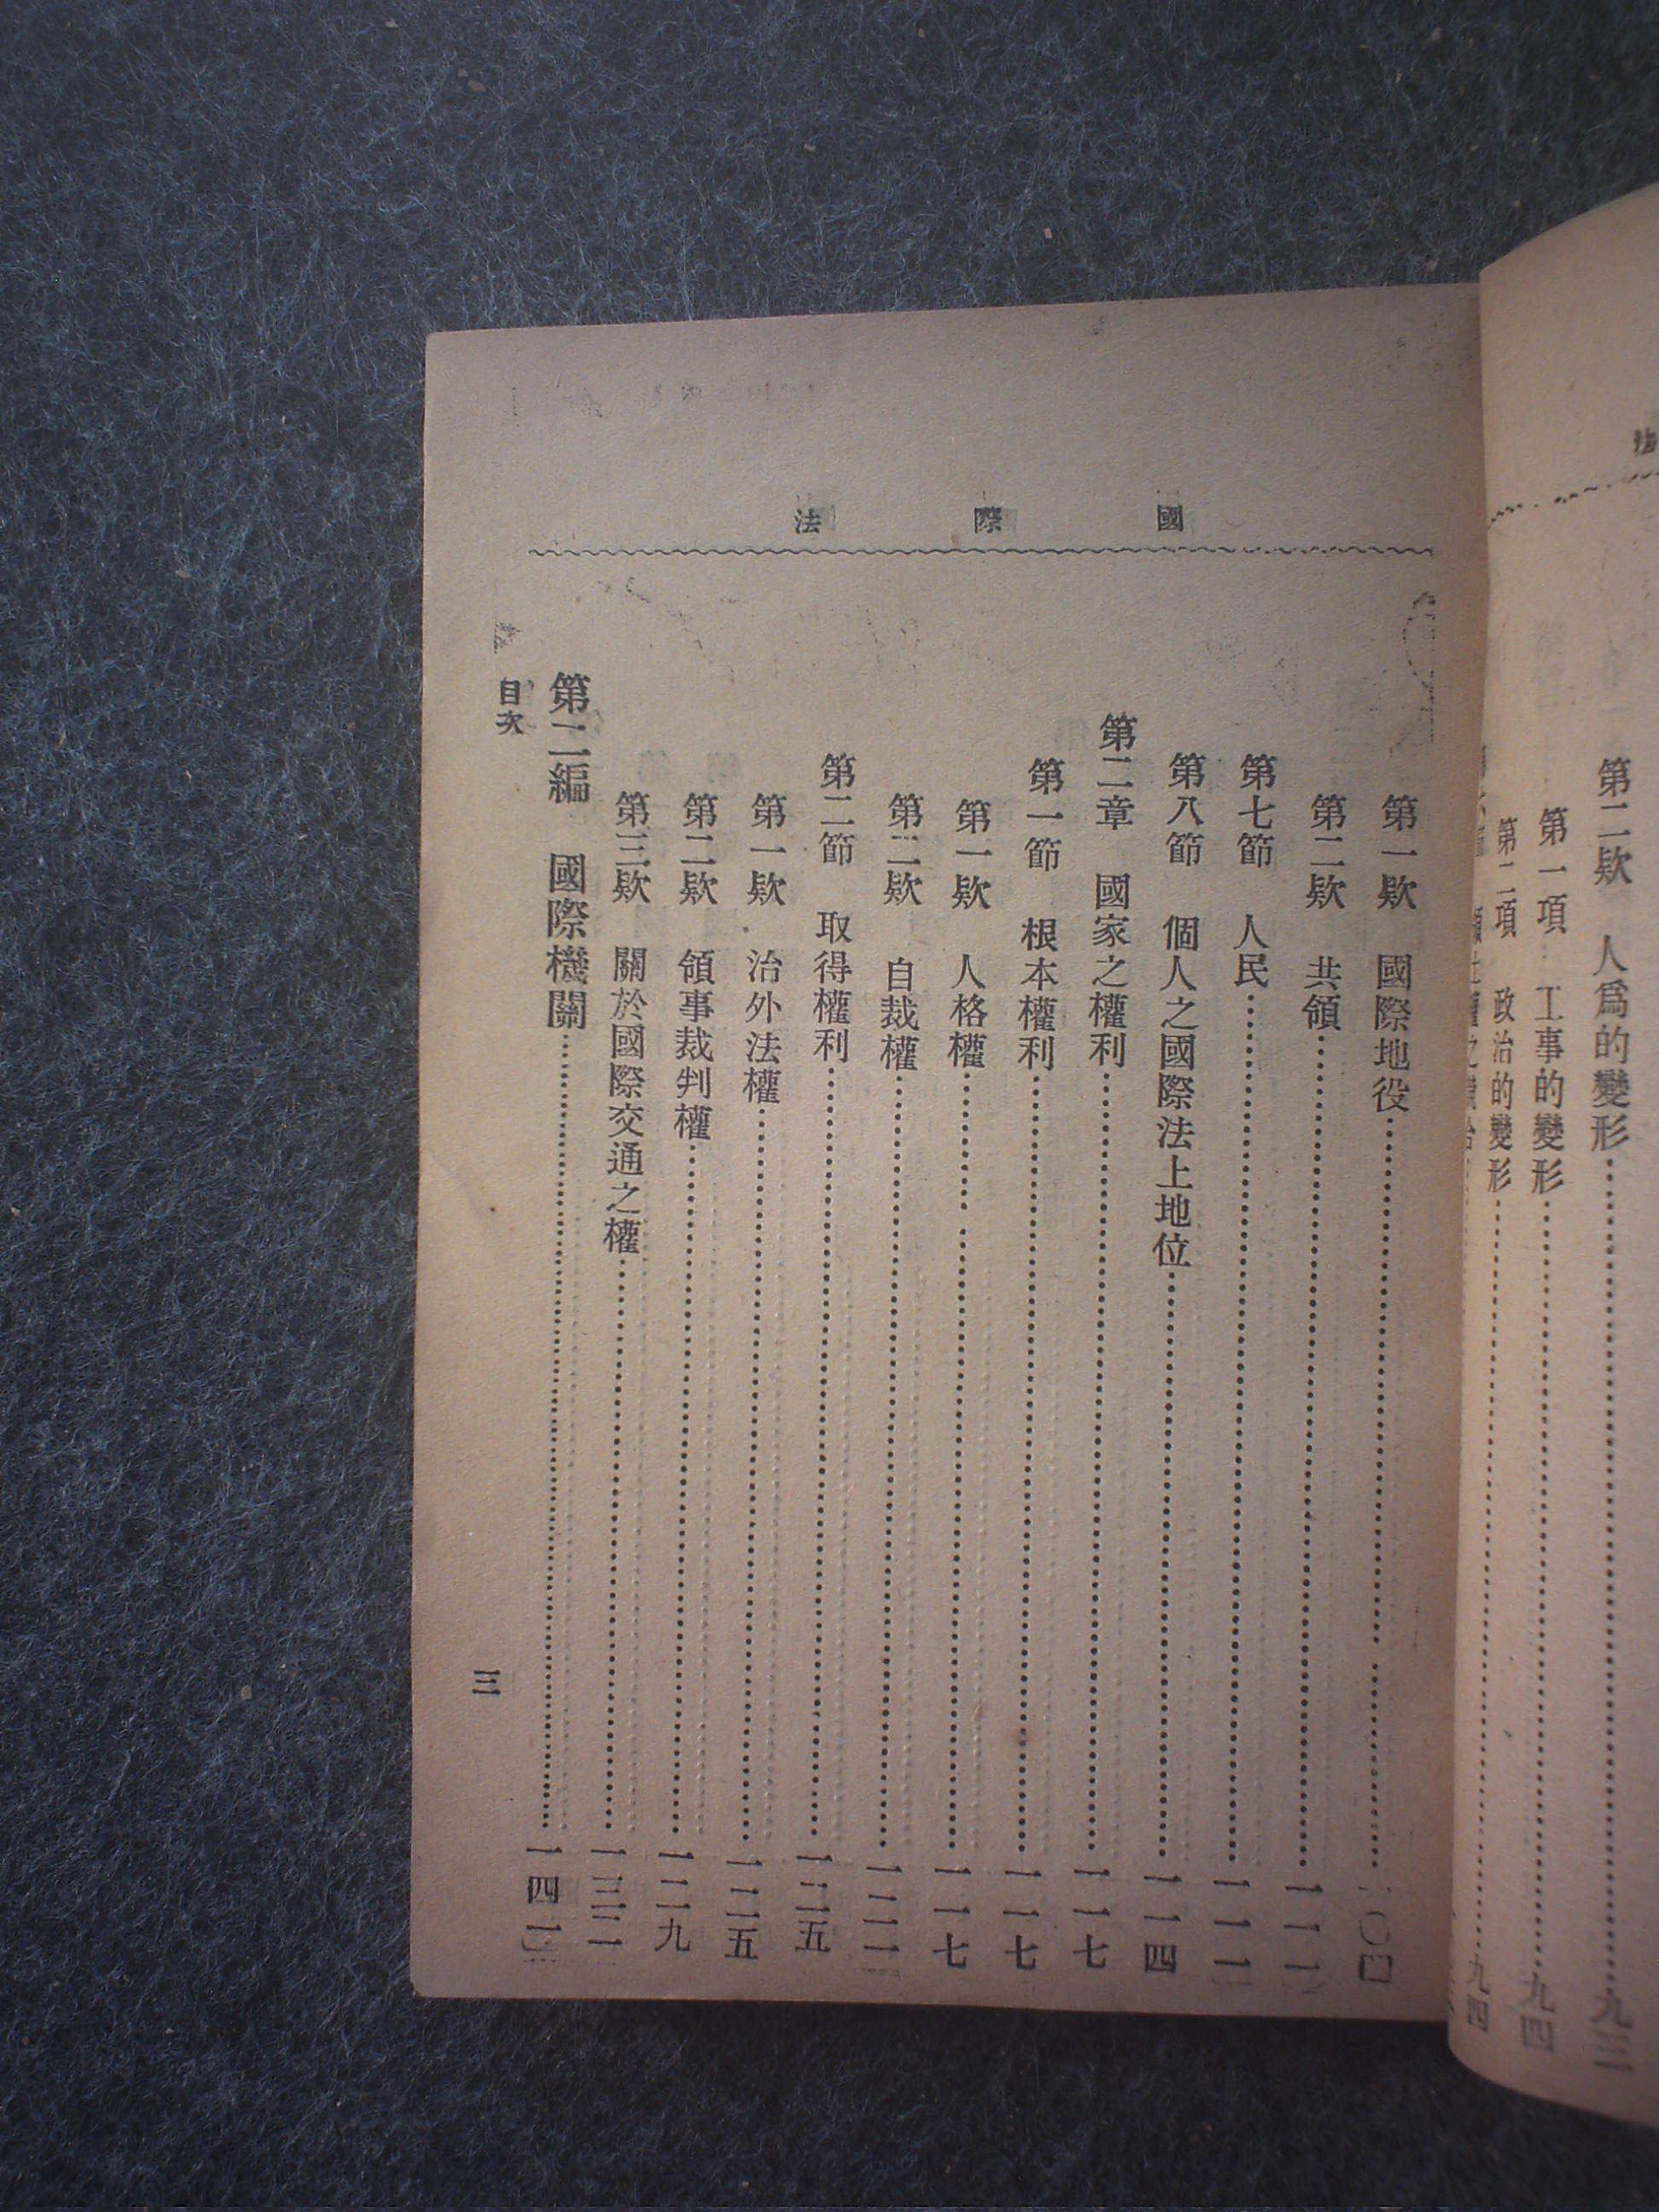 第二欵　人爲的變形………九三
第一項　工事的變形………九四
第二項　政治的變形………九四
國際法
第一欵　國際地役………一〇四
第二欵　共領………一一一
第七節　人民………一一一
第八節　個人之國際法上地位………一一四
第二章　國家之權利………一一七
第一節　根本權利………一一七
第一欵　人格權………一一七
第二欵　自裁權………一二一
第二節　取得權利………一二五
第一欵　治外法權………一二五
第二欵　領事裁判權………一二九
第三欵　關於國際交通之權………一三二
第二編　國際機關………一四
目次
三